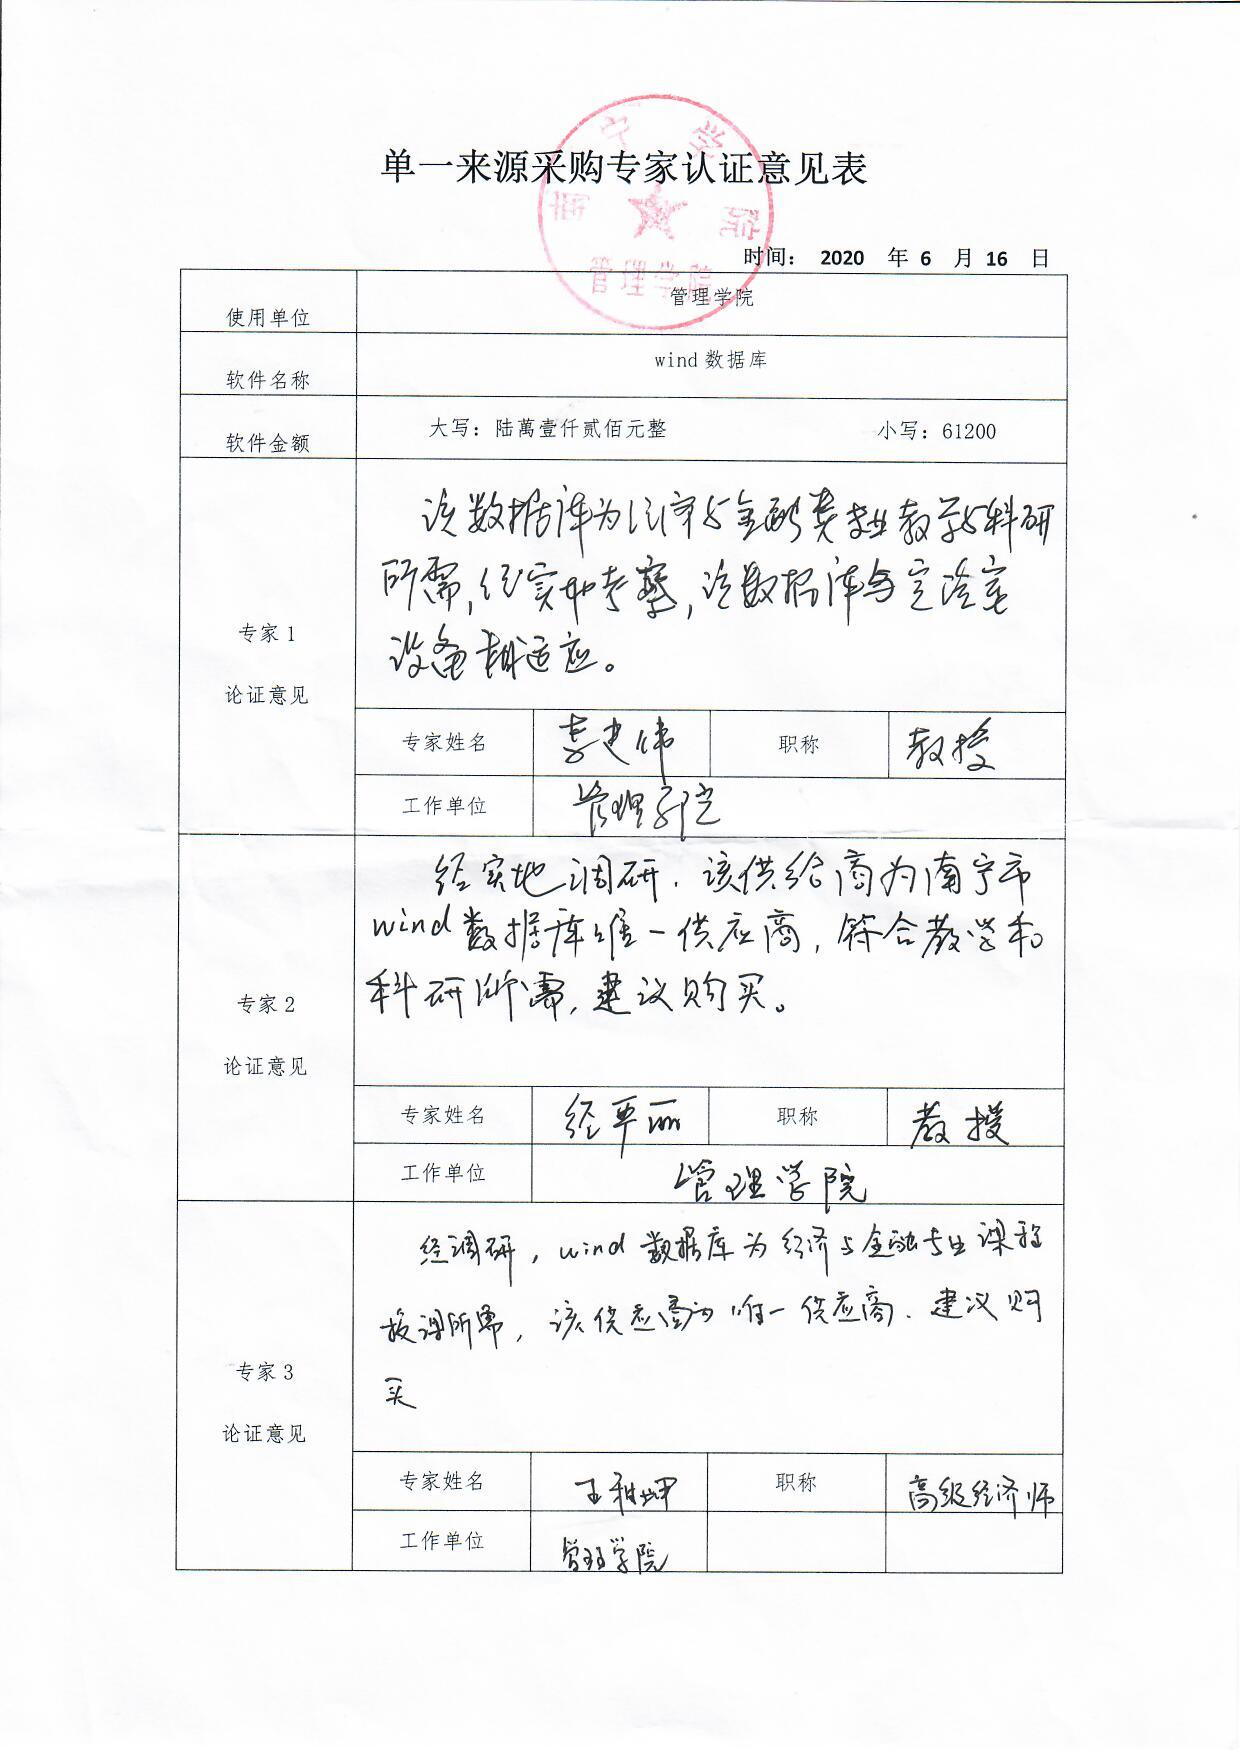 单一来源采购专家认证意见表
南宁学院
管理学院
时间： 2020 年 6 月 16 日
使用单位 管理学院
软件名称 wind 数据库
软件金额 大写：陆萬壹仟贰佰元整 小写：61200
该数据库为经济与金融类专业教学与科研
所需，经实地考察，该数据库与实验室
设备相适应。
专家 1
论证意见
专家姓名 李建伟 职称 教授
工作单位 管理学院
经实地调研，该供给商为南宁市
wind 数据库唯一供应商，符合教学和
科研所需，建议购买。
专家 2
论证意见
专家姓名 职称 教授
工作单位 管理学院
经调研，wind 数据库为经济与金融专业课程
授课所需，该供应商为唯一供应商、建议购
买
专家 3
论证意见
专家姓名 王雅坤 职称 高级经济师
工作单位 管理学院